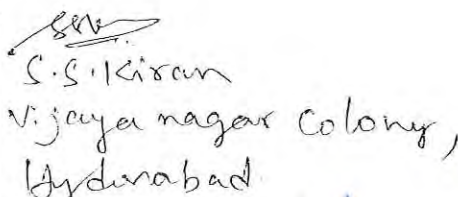 S.S.Kiran
Vijaya nagar Colony,
Hyderabad